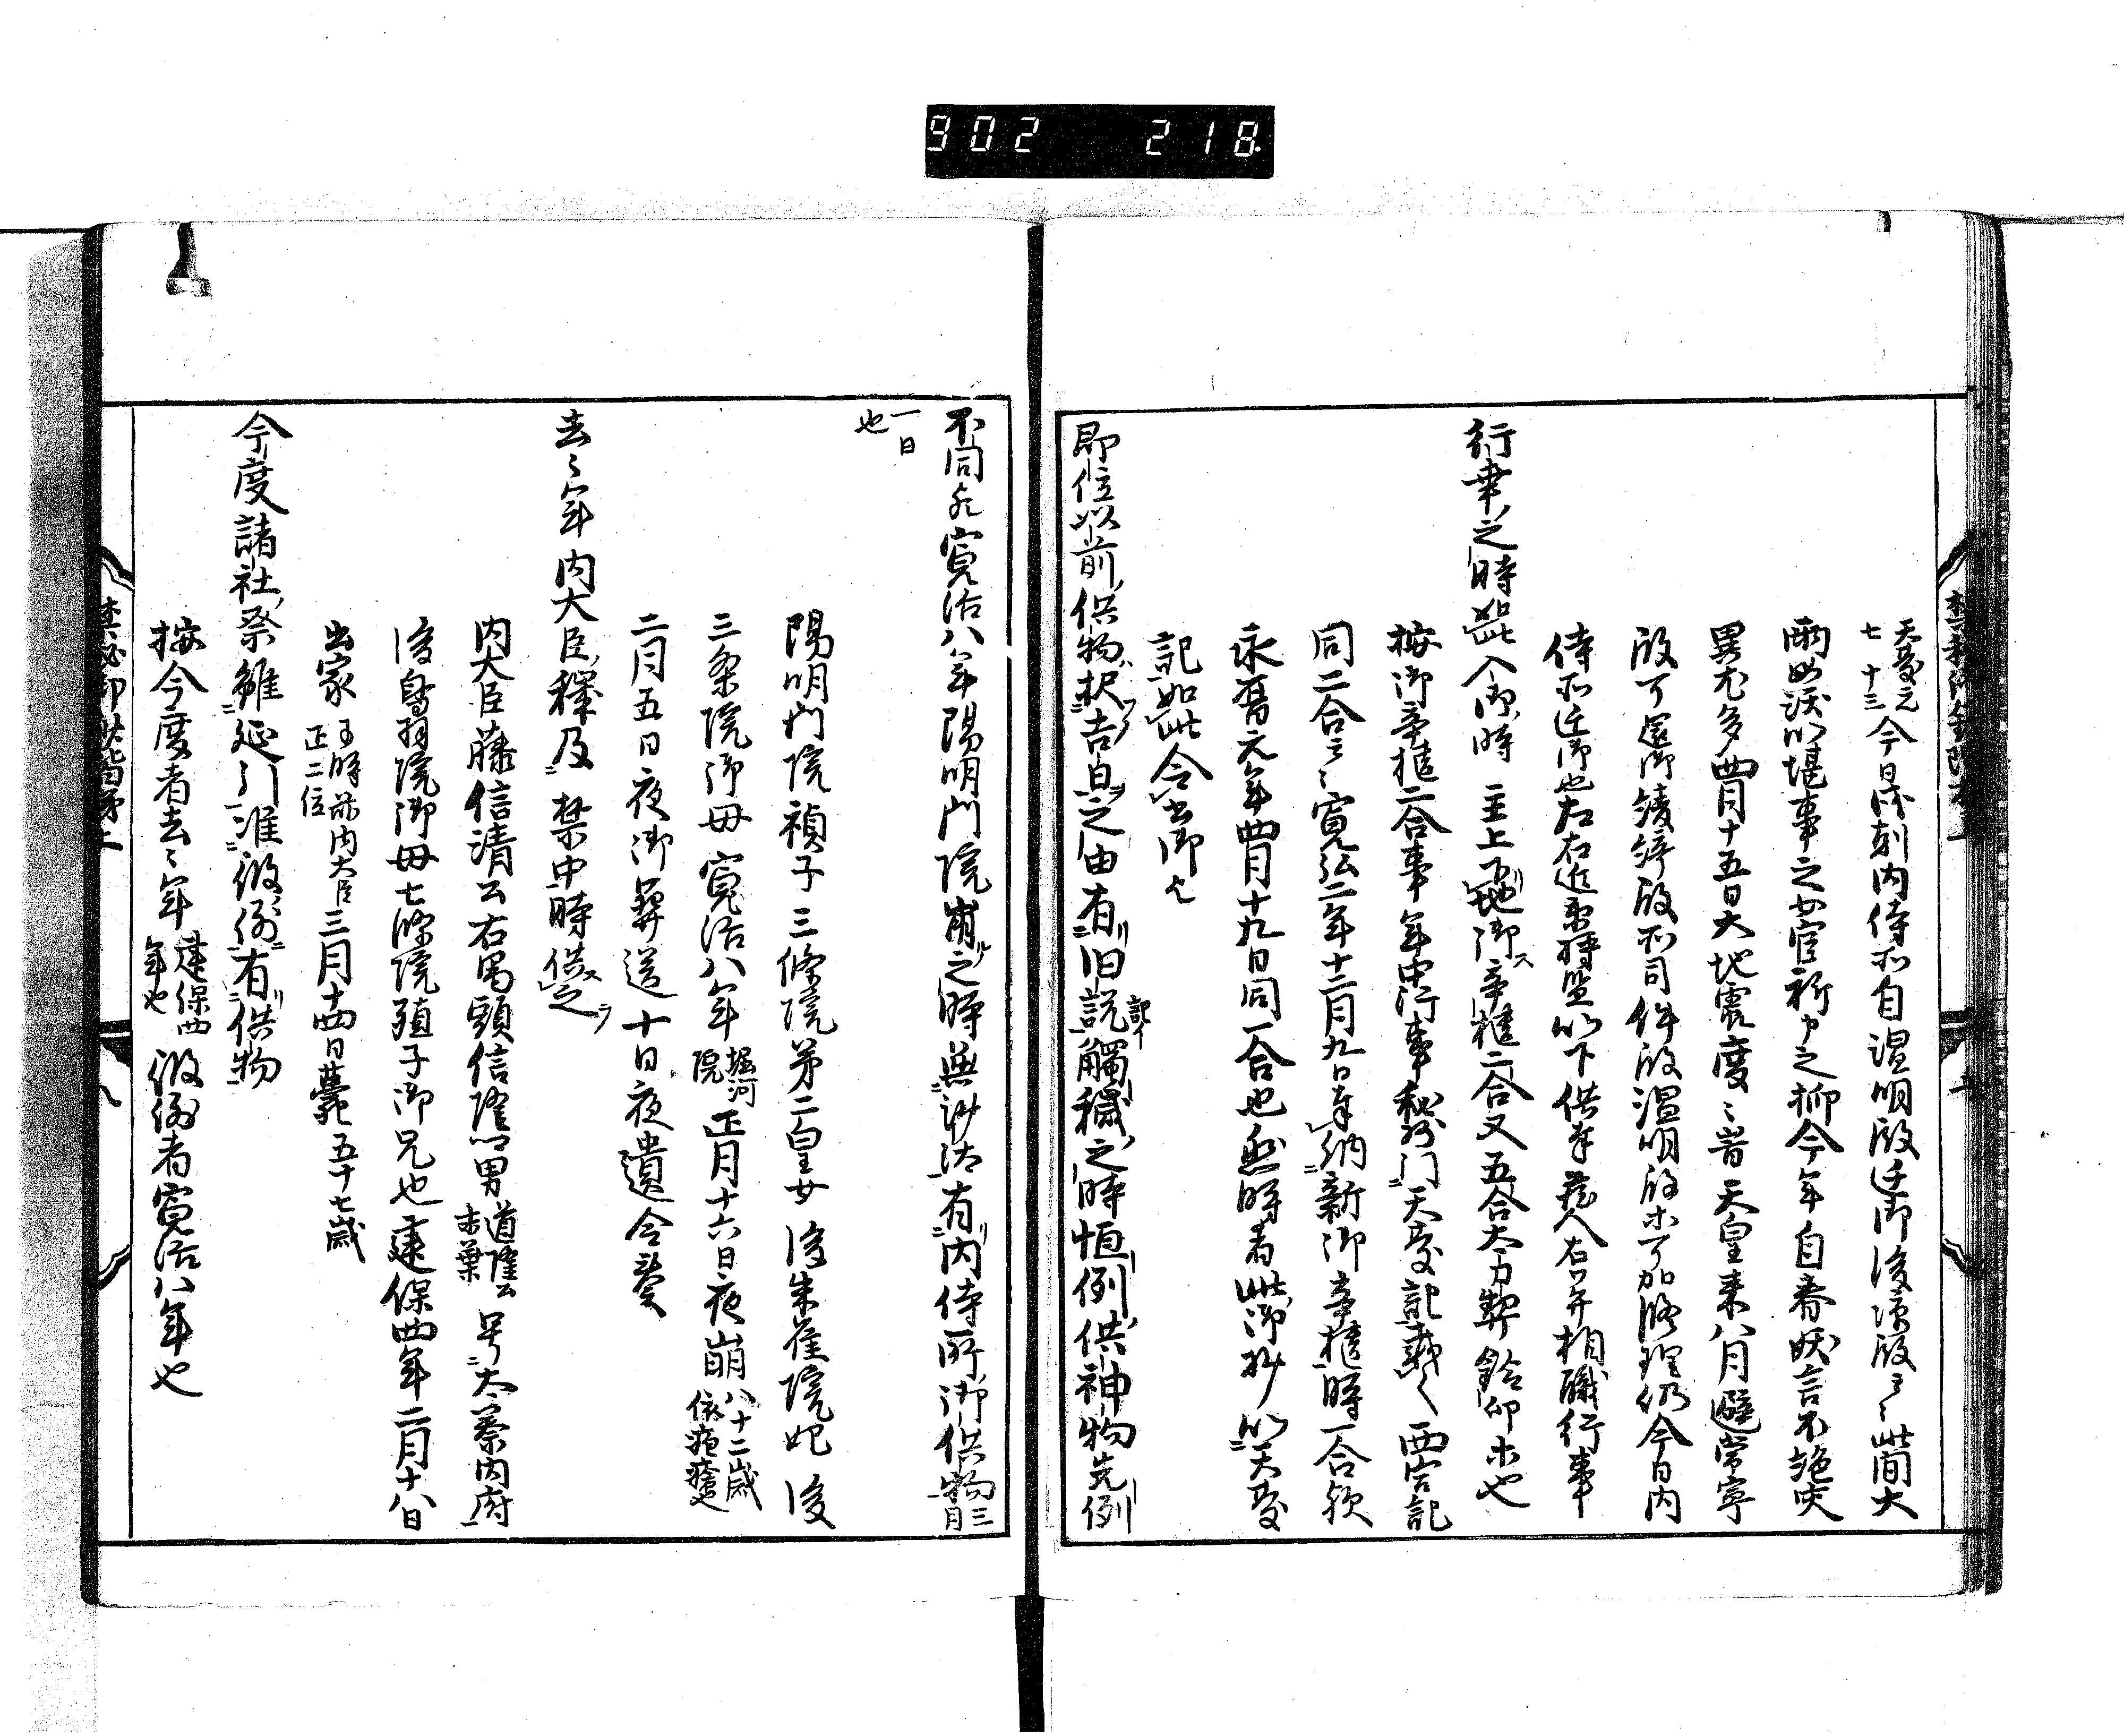 902 218
天慶元
七 十三 今日戌刻内侍所自温明殿迁御後凉殿云々此間大
雨如沃以堪事之女官祈申之抑今年自春妖言不絶天
異尤多四月十五日大地震度々昔天皇来八月避常寧
殿可還御綾綺殿所司件殿温明殿木可加修理仍今日内
侍所迁御也左右近少将监以下供奉蔵人右少弁相職行事
行幸之時如此入御時 主上下地御辛櫃二合又五合大刀契鈴印木也
按御辛櫃二合事年中行事秘抄门天慶記載之西宮記
同二合云々寛弘二年十二月九日奉納新御辛櫃時一合欤
永暦元年四月十九日同一合也然時者此御抄以天慶
記如此令書御乞
即位以前供物択吉日之由有旧説記イ觸穢之時恒例供神物先例
不同欤寛治八年陽明門院崩之時無沙汰有内侍所御供物三月
一日
也
陽明门院禎子三條院第二皇女後朱雀院妃後
三条院御母寛治八年堀河院正月十六日夜崩八十二歳依疱瘡也
二月五日夜御葬送十日夜遺令奏
去々年内大臣穢及禁中時供之
内大臣藤信清公右馬頭信隆卿男道隆公末葉号太秦内府
後鳥羽院御母七條院殖子御兄也建保四年二月十八日
出家于時前内大臣正二位三月十四日薨五十七歳
今度諸社祭雖延引准彼例有供物
按今度者去々年建保四年也彼例者寛治八年也